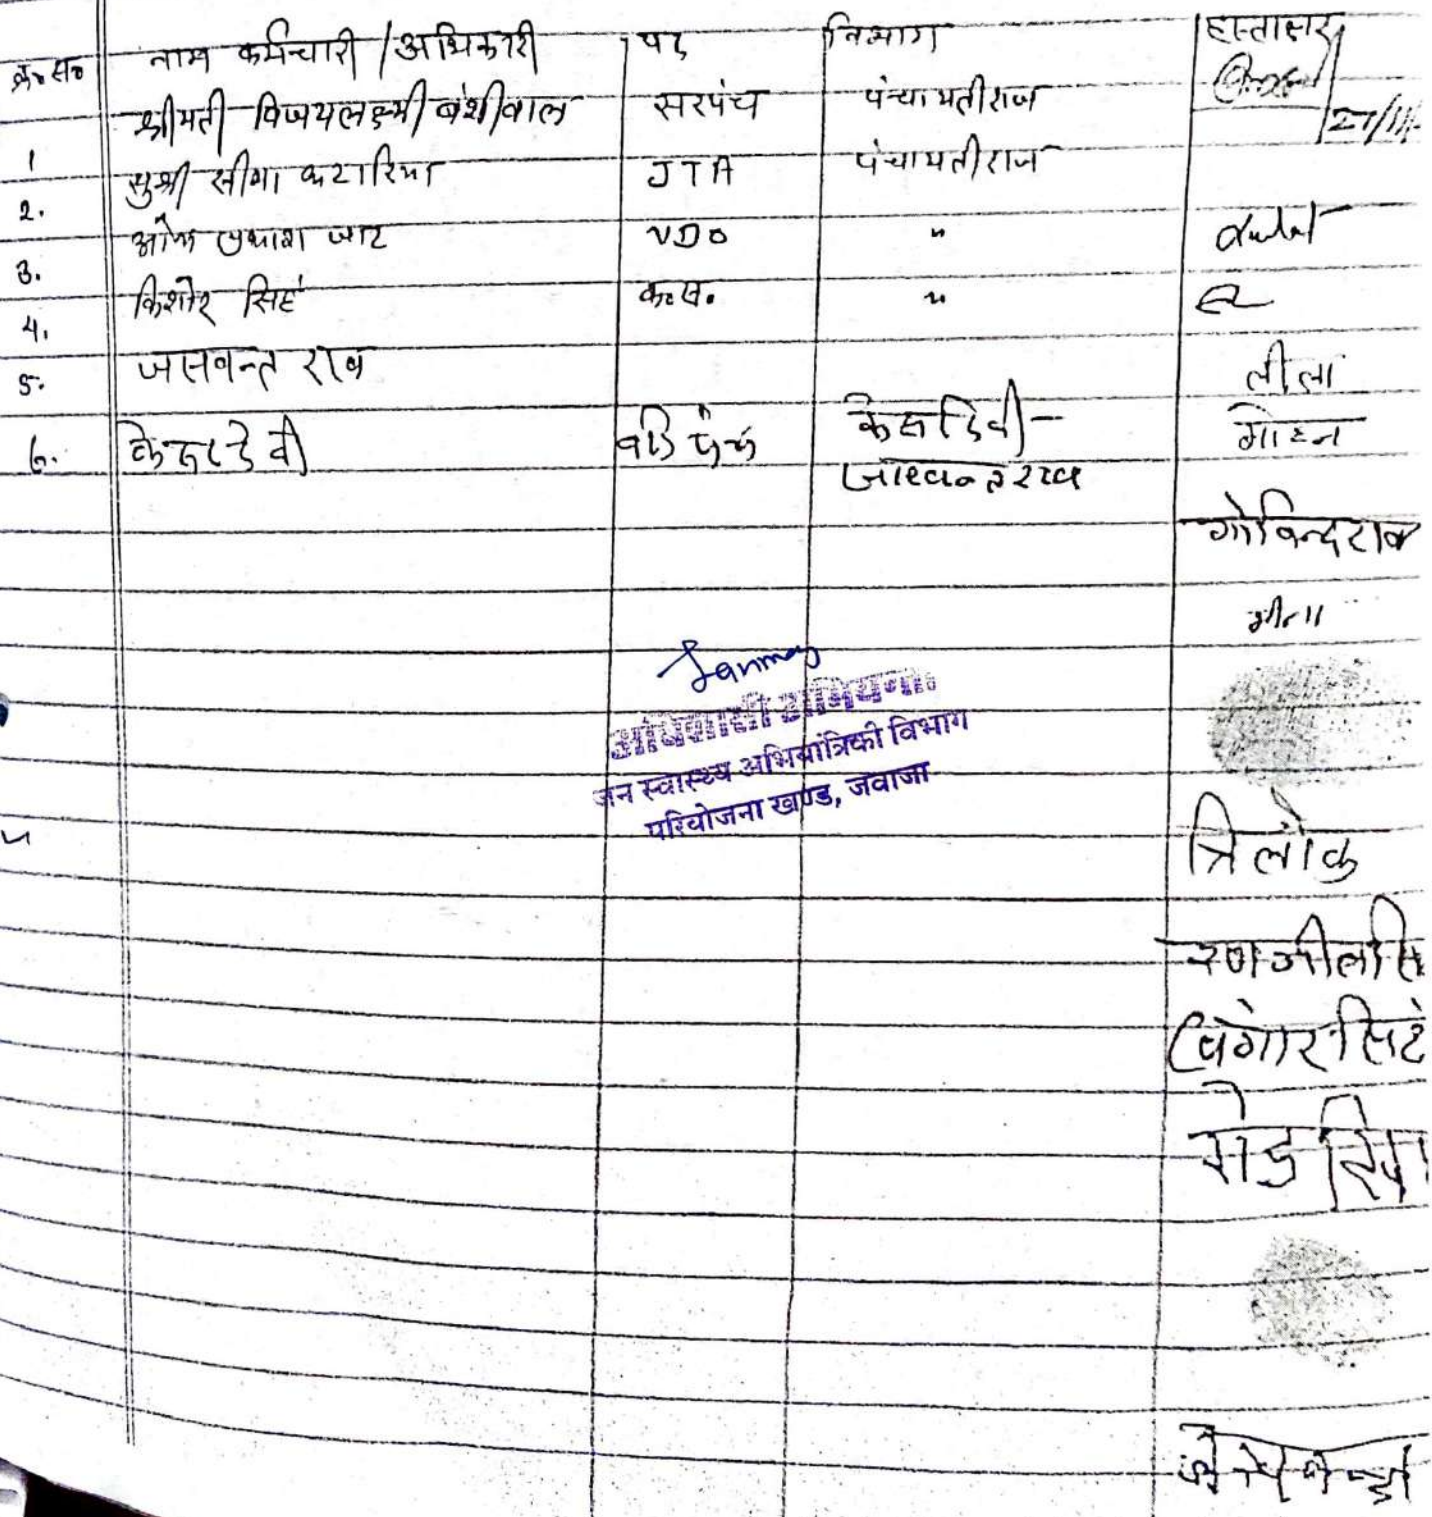 क्र० सं० नाम कर्मचारी / अधिकारी पद विभाग हस्ताक्षर
1 श्रीमती विजयलक्ष्मी बंशीवाल सरपंच पंचायतीराज 27/11/
2. सुश्री सीमा कटारिया JTA पंचायतीराज
3. ओम प्रकाश जाट VDO "
4. किशोर सिहं क.स. "
5. जसवन्त राव लीला
6. केसरदेवी वार्ड पंच केसरदेवी - मोहन
जसवन्तराव
गोविन्दराव
सीता
Sanmay
अधिशासी अभियन्ता
जन स्वास्थ्य अभियांत्रिकी विभाग
परियोजना खण्ड, जवाजा
त्रिलोक
रणजीतसि